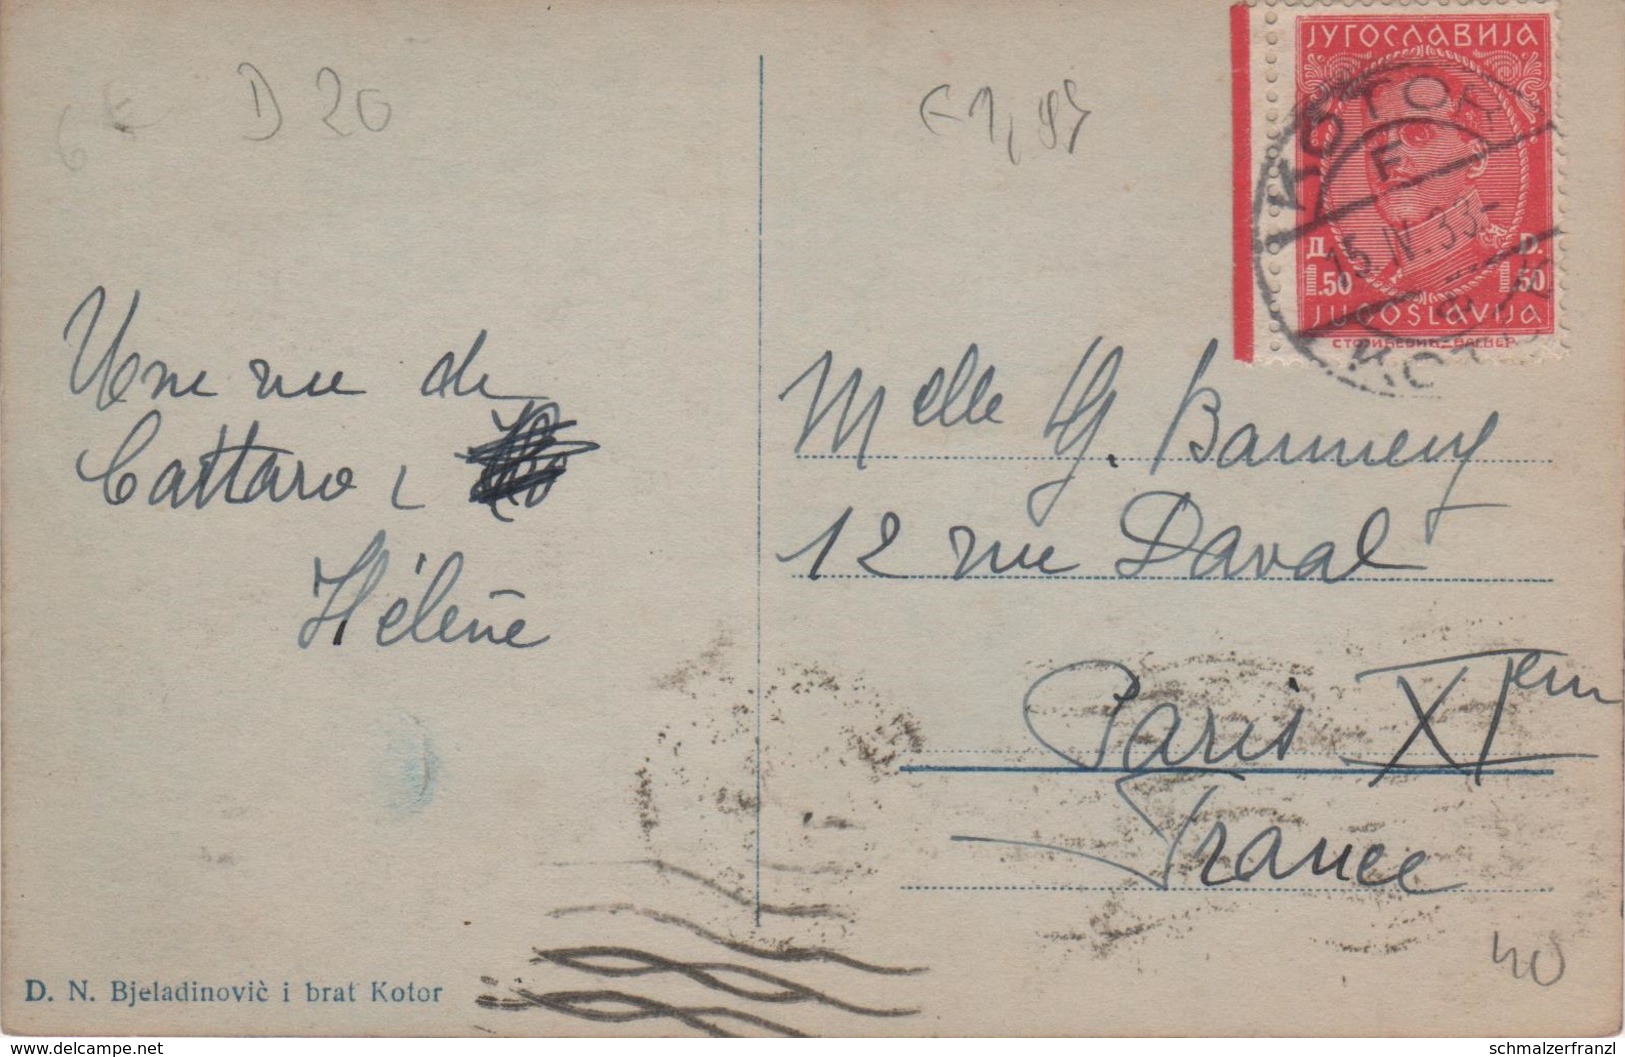 6 €
D 20
€ 1,95
ЈУГОСЛАВИЈА
КОТОР
F
15 IV. 33
Д. D.
1.50 1.50
JUGOSLAVIJA
KOTOR
Une vue de
Cattaro
Hélène
Melle G.
12 rue Daval
Paris XIem
France
40
D. N. Bjeladinovič i brat Kotor
www.delcampe.net
schmalzerfranzl